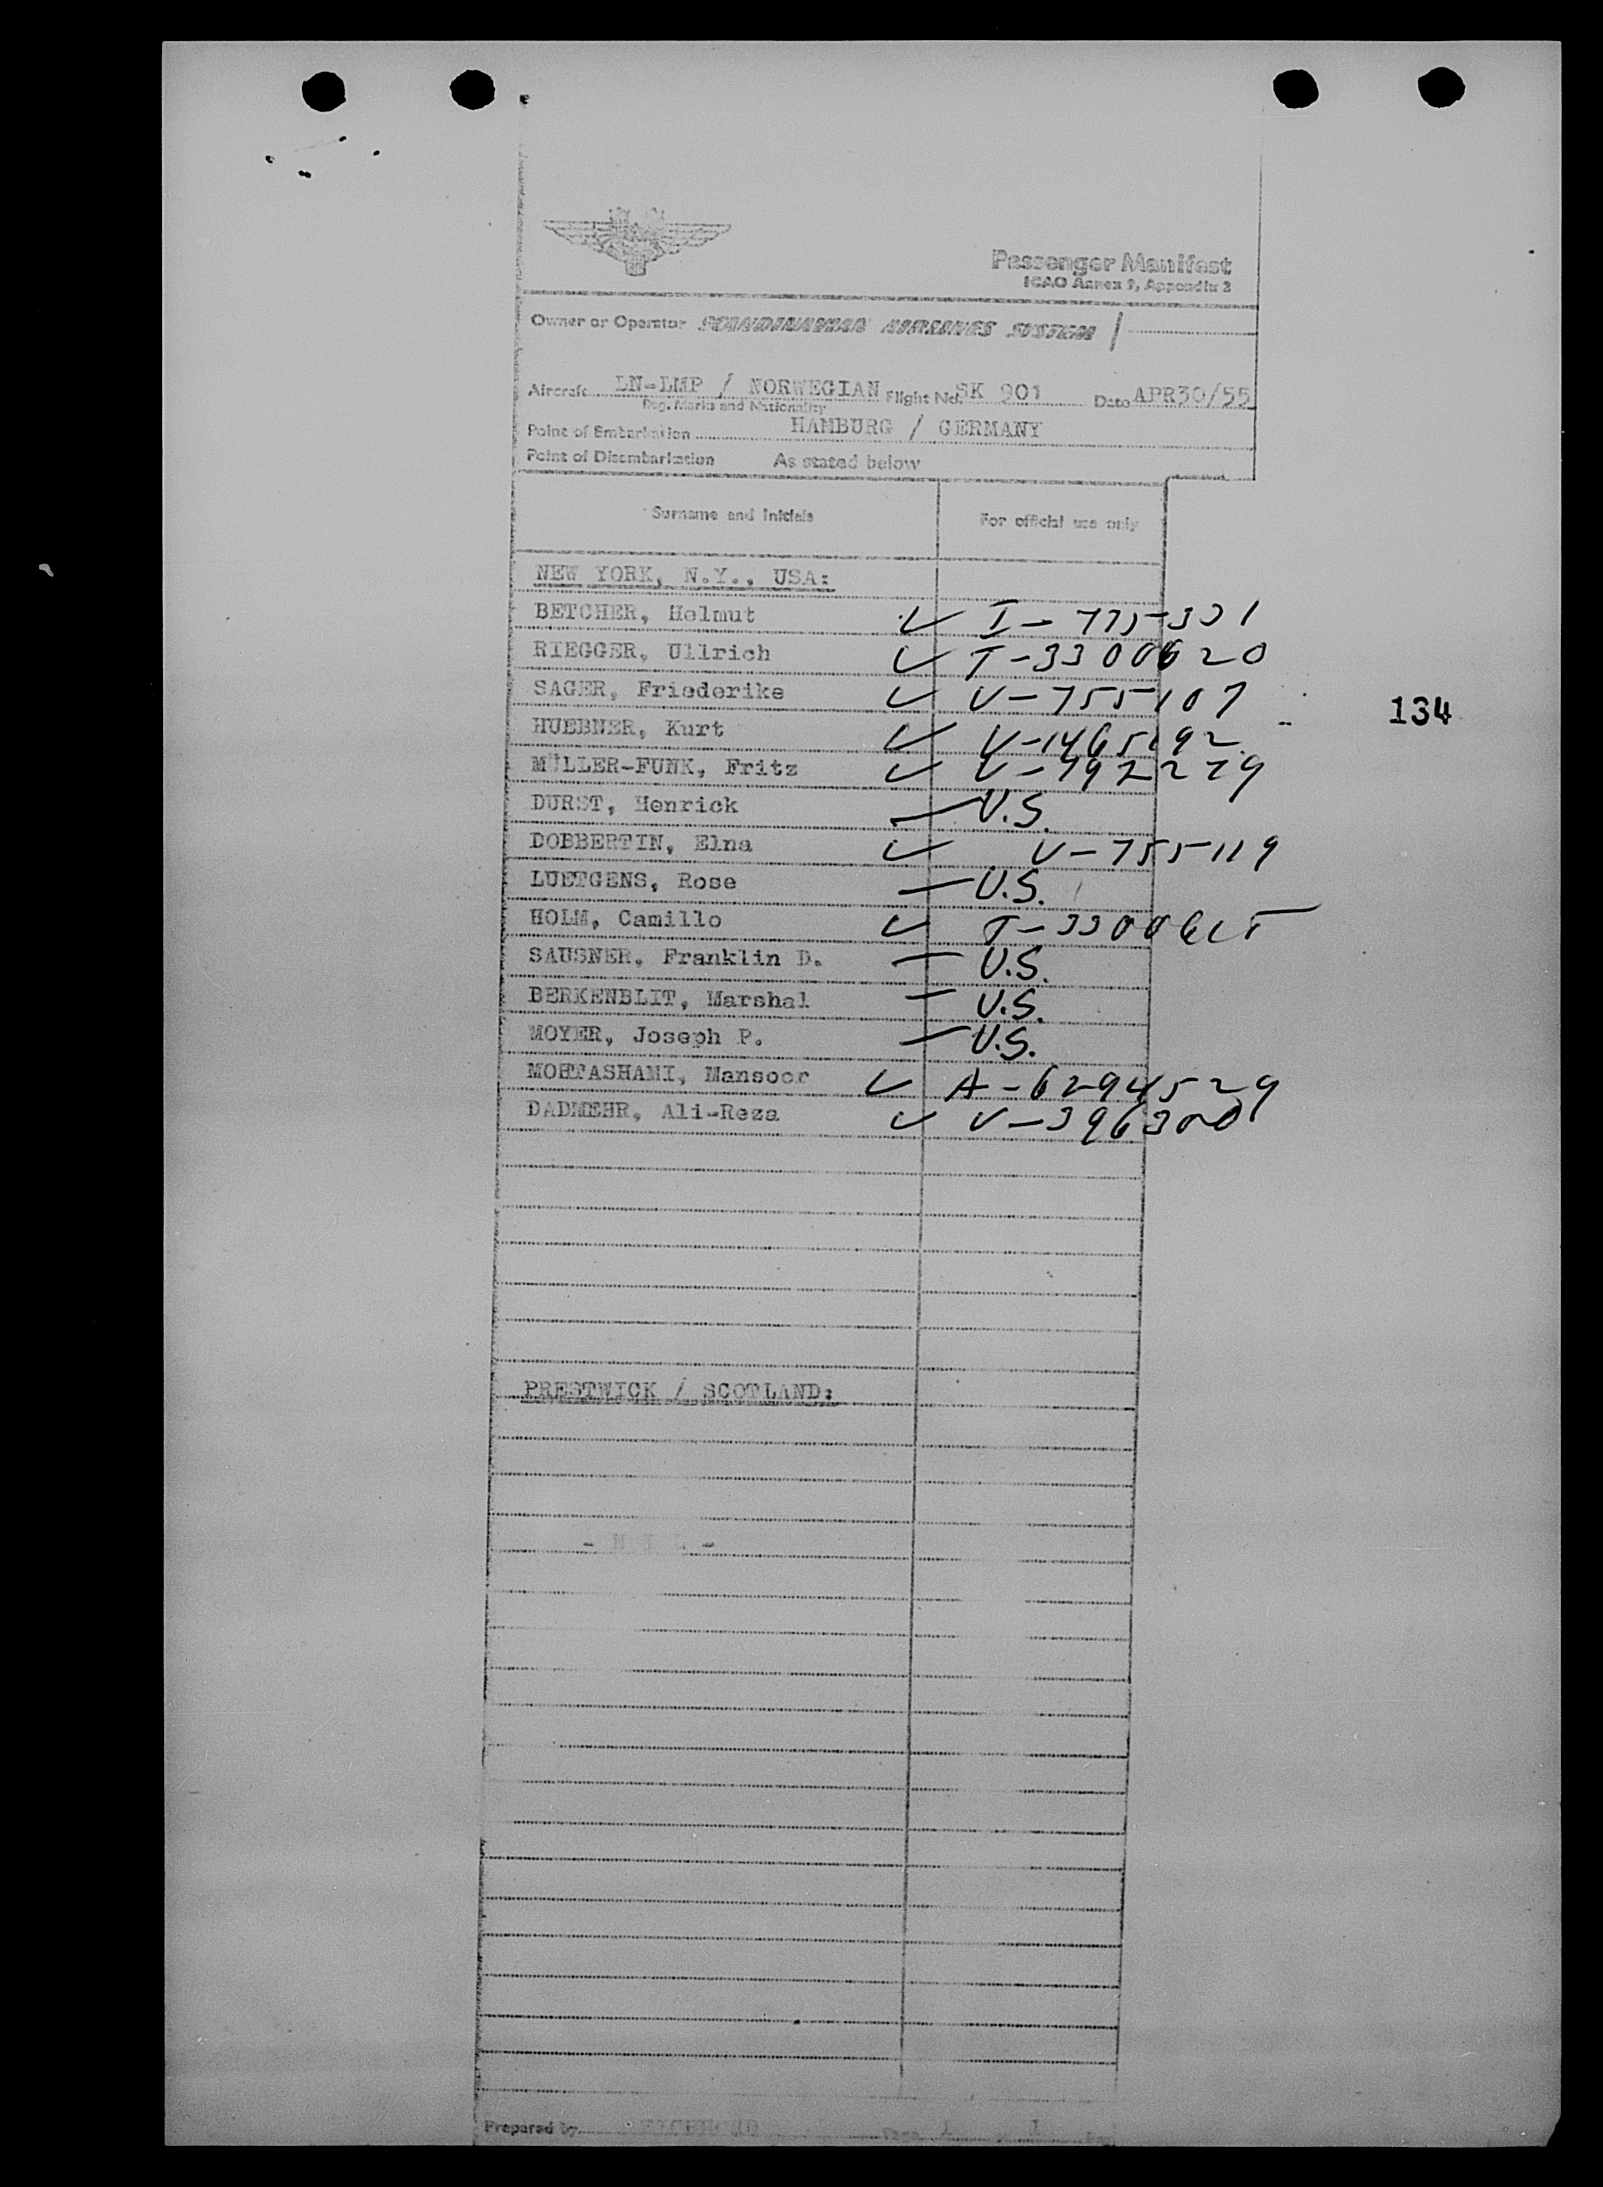 Passenger Manifest
ICAO Annex 9, Appendix 3
Owner or Operator SCANDINAVIAN AIRLINES SYSTEM
Aircraft LN-LMP / NORWEGIAN Flight No. SK 901 Date APR30/55
Reg. Marks and Nationality
Point of Embarkation HAMBURG / GERMANY
Point of Disembarkation As stated below
Surname and initials For official use only
NEW YORK, N.Y., USA:
BETCHER, Helmut ✓ I-775-331
RIEGGER, Ullrich ✓ T-3300620
SAGER, Friederike ✓ V-755107
134
HUEBNER, Kurt ✓ V-1465192
MÜLLER-FUNK, Fritz ✓ V-792279
DURST, Henrick — U.S.
DOBBERTIN, Elna ✓ V-755119
LUETGENS, Rose — U.S.
HOLM, Camillo ✓
SAUSNER, Franklin D. — U.S.
BERKENBLIT, Marshal — U.S.
MOYER, Joseph P. — U.S.
MOHTASHAMI, Mansoor ✓ A-6294529
DADMEHR, Ali-Reza ✓ V-396300
PRESTWICK / SCOTLAND:
Prepared by